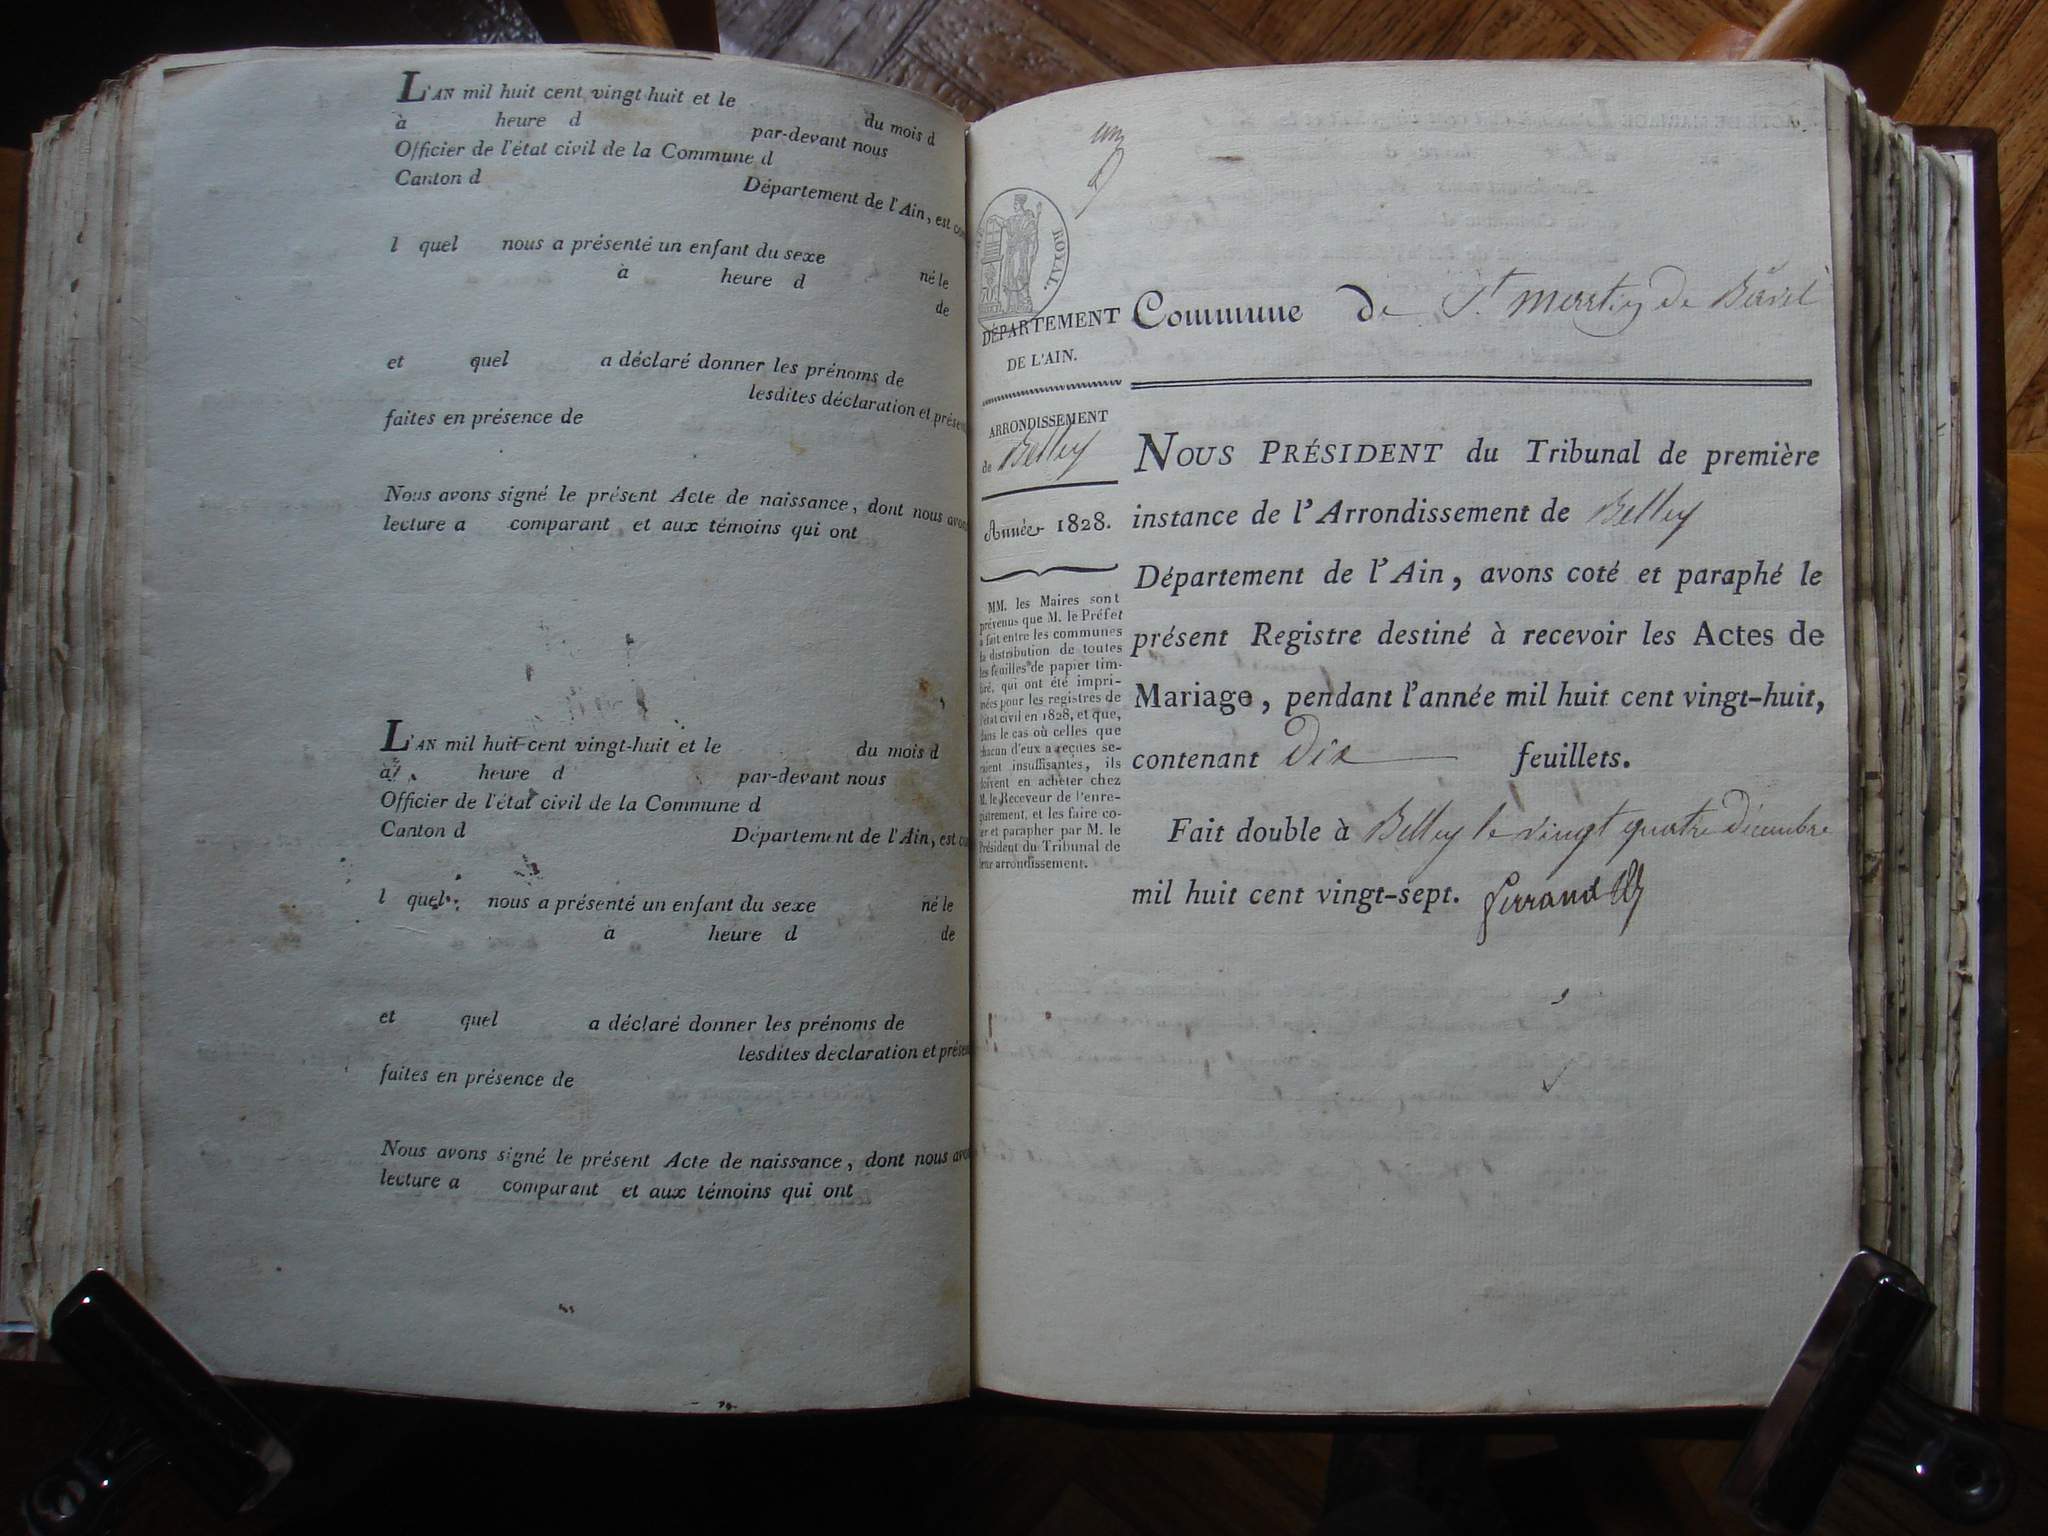 L'AN mil huit cent vingt-huit et le du mois d
à heure d par-devant nous
Officier de l'état civil de la Commune d
Canton d Département de l'Ain, est
l quel nous a présenté un enfant du sexe né le
à heure d de
et quel a déclaré donner les prénoms de
lesdites déclaration et présen
faites en présence de
Nous avons signé le présent Acte de naissance, dont nous avons
lecture a comparant et aux témoins qui ont
L'AN mil huit-cent vingt-huit et le du mois d
à heure d par-devant nous
Officier de l'état civil de la Commune d
Canton d Département de l'Ain, est
l quel nous a présenté un enfant du sexe né le
à heure d de
et quel a déclaré donner les prénoms de
lesdites déclaration et présen
faites en présence de
Nous avons signé le présent Acte de naissance, dont nous avo
lecture a comparant et aux témoins qui ont
un
ROYAL.
DÉPARTEMENT
DE L'AIN.
ARRONDISSEMENT
de Belley
Année 1828.
MM. les Maires sont
prévenus que M. le Préfet
a fait entre les communes
la distribution de toutes
les feuilles de papier tim-
bré, qui ont été impri-
mées pour les registres de
l'état civil en 1828, et que,
dans le cas où celles que
chacun d'eux a reçues se-
raient insuffisantes, ils
doivent en acheter chez
M. le Receveur de l'enre-
gistrement, et les faire co-
ter et parapher par M. le
Président du Tribunal de
leur arrondissement.
Commune de St Martin de Bavel
NOUS PRÉSIDENT du Tribunal de première
instance de l'Arrondissement de Belley
Département de l'Ain, avons coté et paraphé le
présent Registre destiné à recevoir les Actes de
Mariage, pendant l'année mil huit cent vingt-huit,
contenant Dix feuillets.
Fait double à Belley le vingt quatre décembre
mil huit cent vingt-sept. Ferrand